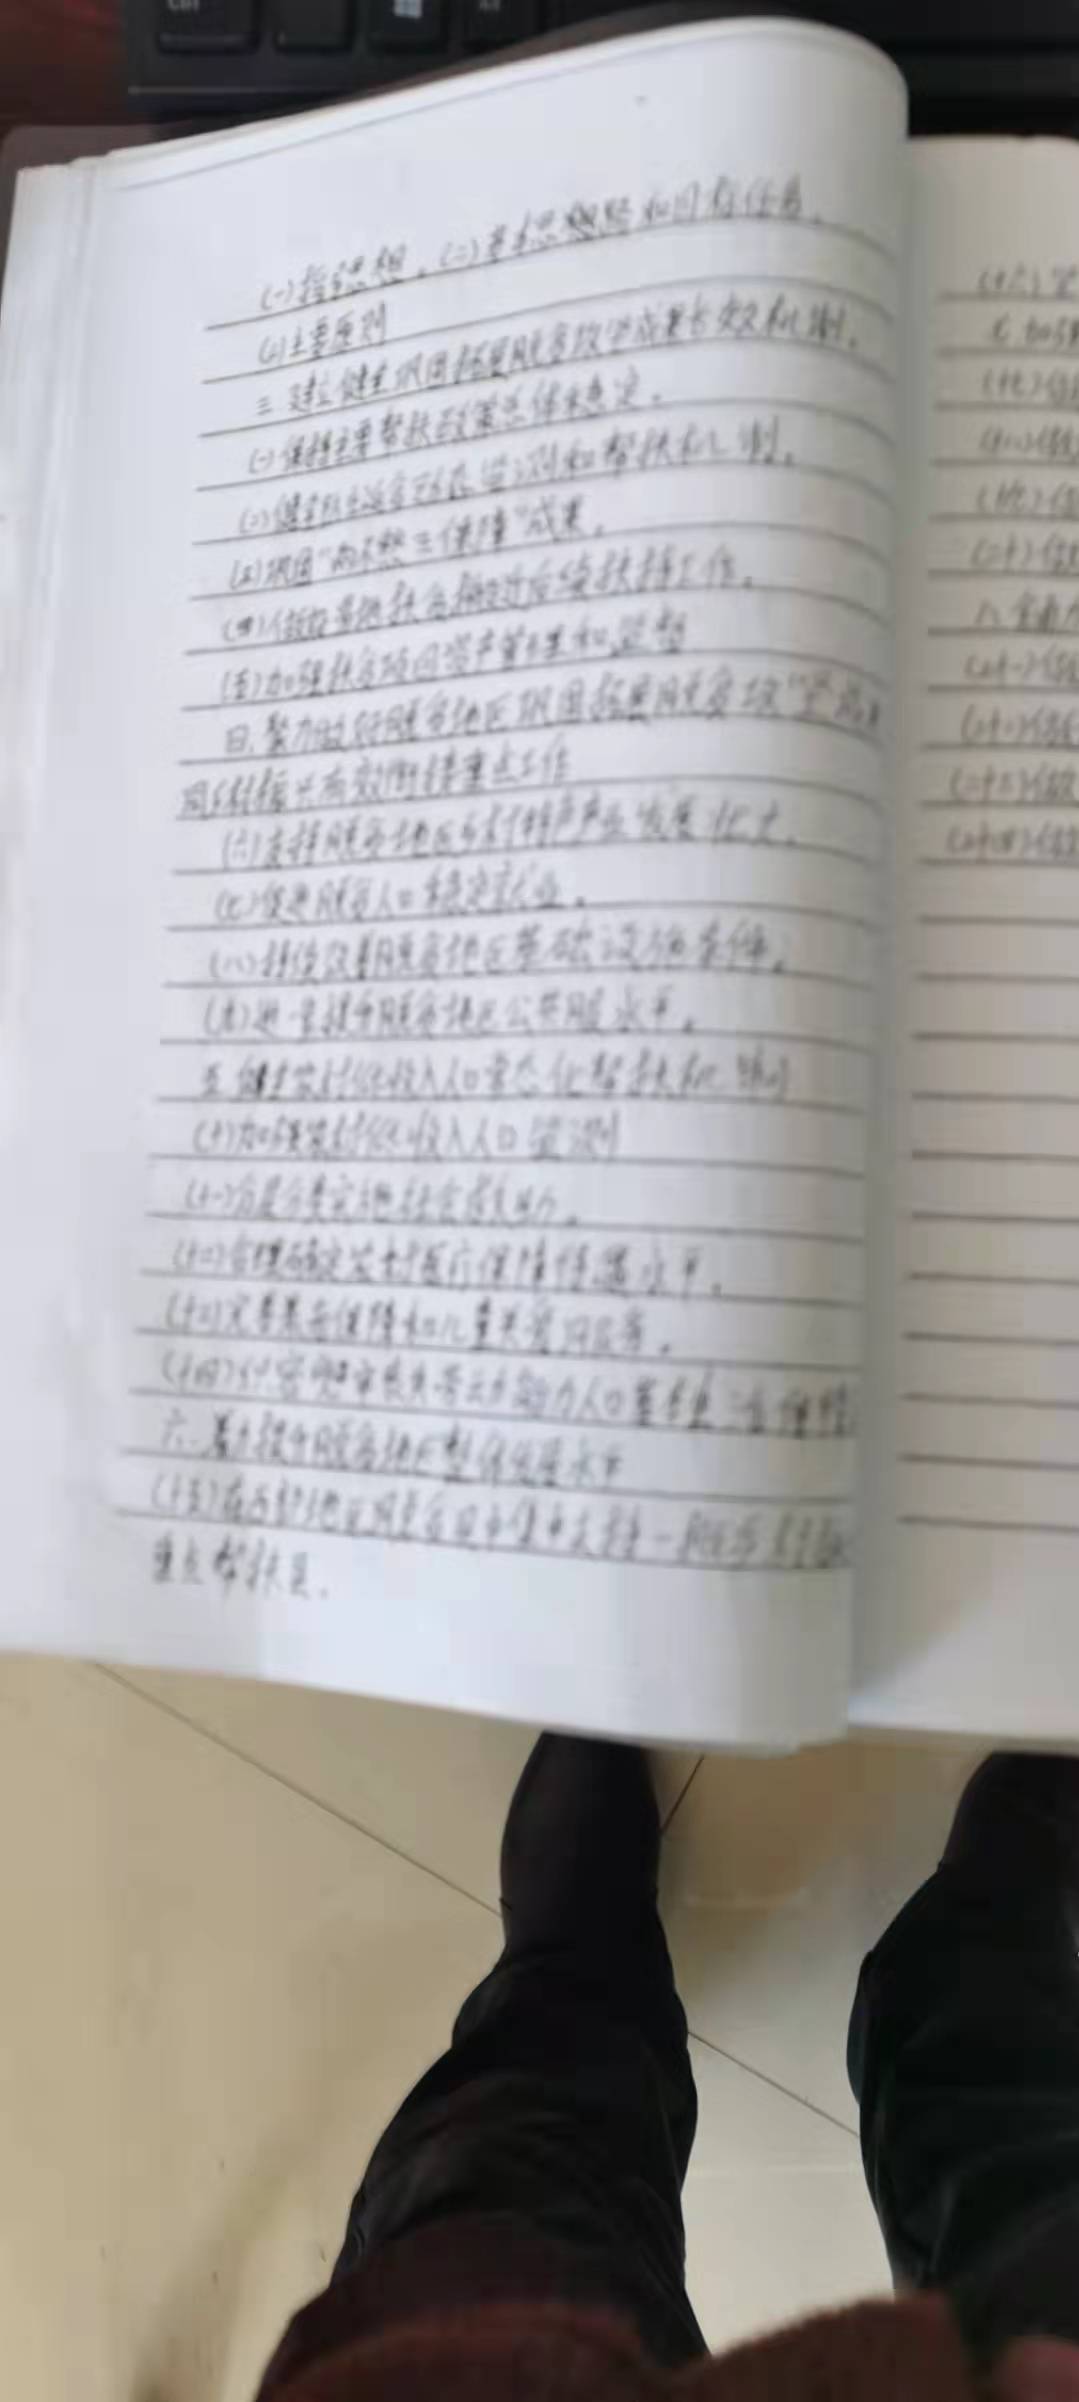 (一)指导思想。(二)基本思想路和目标任务。
(三)主要原则
三 建立健全巩固拓展脱贫攻坚成果长效机制。
(一)保持主要帮扶政策总体稳定。
(二)健全防止返贫动态监测和帮扶机制。
(三)巩固"两不愁三保障"成果。
(四)做好易地扶贫搬迁后续扶持工作。
(五)加强扶贫项目资产管理和监督
四、聚力做好脱贫地区巩固拓展脱贫攻"坚成果
同乡村振兴有效衔接重点工作
(六)支持脱贫地区乡村特色产业发展壮大。
(七)促进脱贫人口稳定就业。
(八)持续改善脱贫地区基础设施条件。
(九)进一步提升脱贫地区公共服水平。
五 健全农村低收入人口常态化帮扶机制
(十)加强农村低收入人口监测
(十一)分层分类实施社会救助。
(十二)合理确定农村医疗保障待遇水平。
(十三)完善养老保障和儿童关爱服务。
(十四)织密兜牢丧失劳动能力人口基本生活保障
六、着力提升脱贫地区整体发展水平
(十五)在西部地区脱贫县中集中支持一批乡村振兴
重点帮扶县。
(十六)
七 加强
(十七)
(十八)做
(十九)
(二十)做
八 全面
(二十一)
(二十二)
(二十三)做
(二十四)做